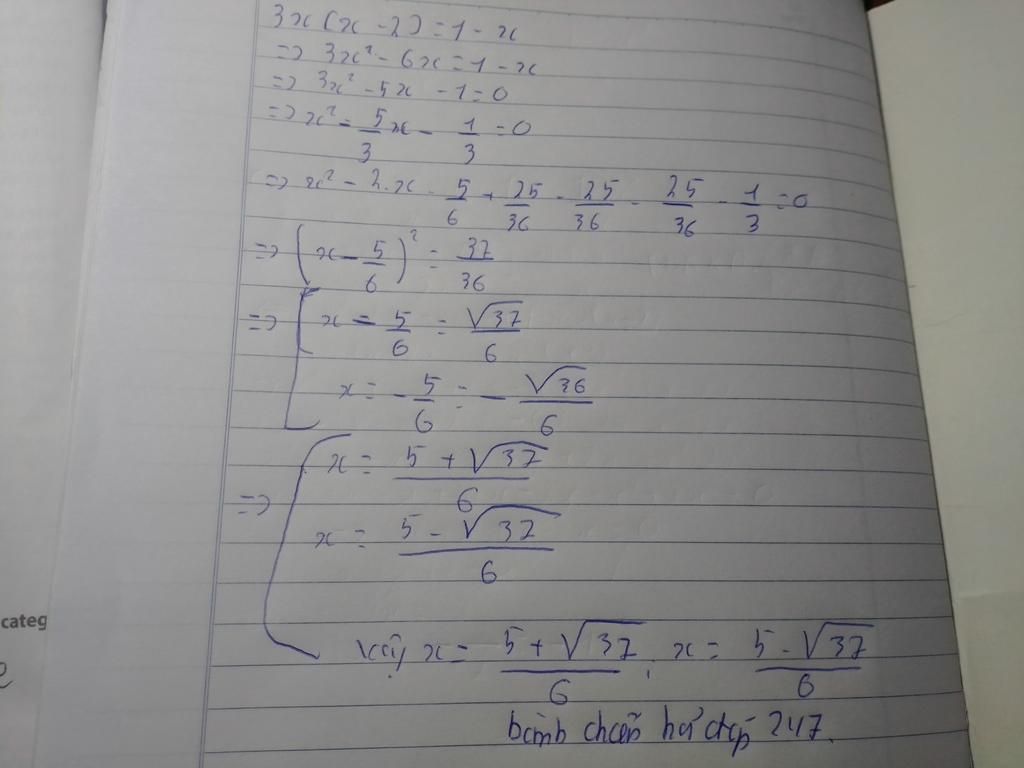 3x(x - 2) = 1 - x
=> 3x² - 6x = 1 - x
=> 3x² - 5x - 1 = 0
=> x² - 5/3 x - 1/3 = 0
=> x² - 2.x . 5/6 + 25/36 - 25/36 - 25/36 - 1/3 = 0
=> (x - 5/6)² = 37/36
=> [ x - 5/6 = √37/6
x = - 5/6 = - √36/6
=> [ x = (5 + √37)/6
x = (5 - √37)/6
Vậy x = (5 + √37)/6 . x = (5 - √37)/6
categ
247.